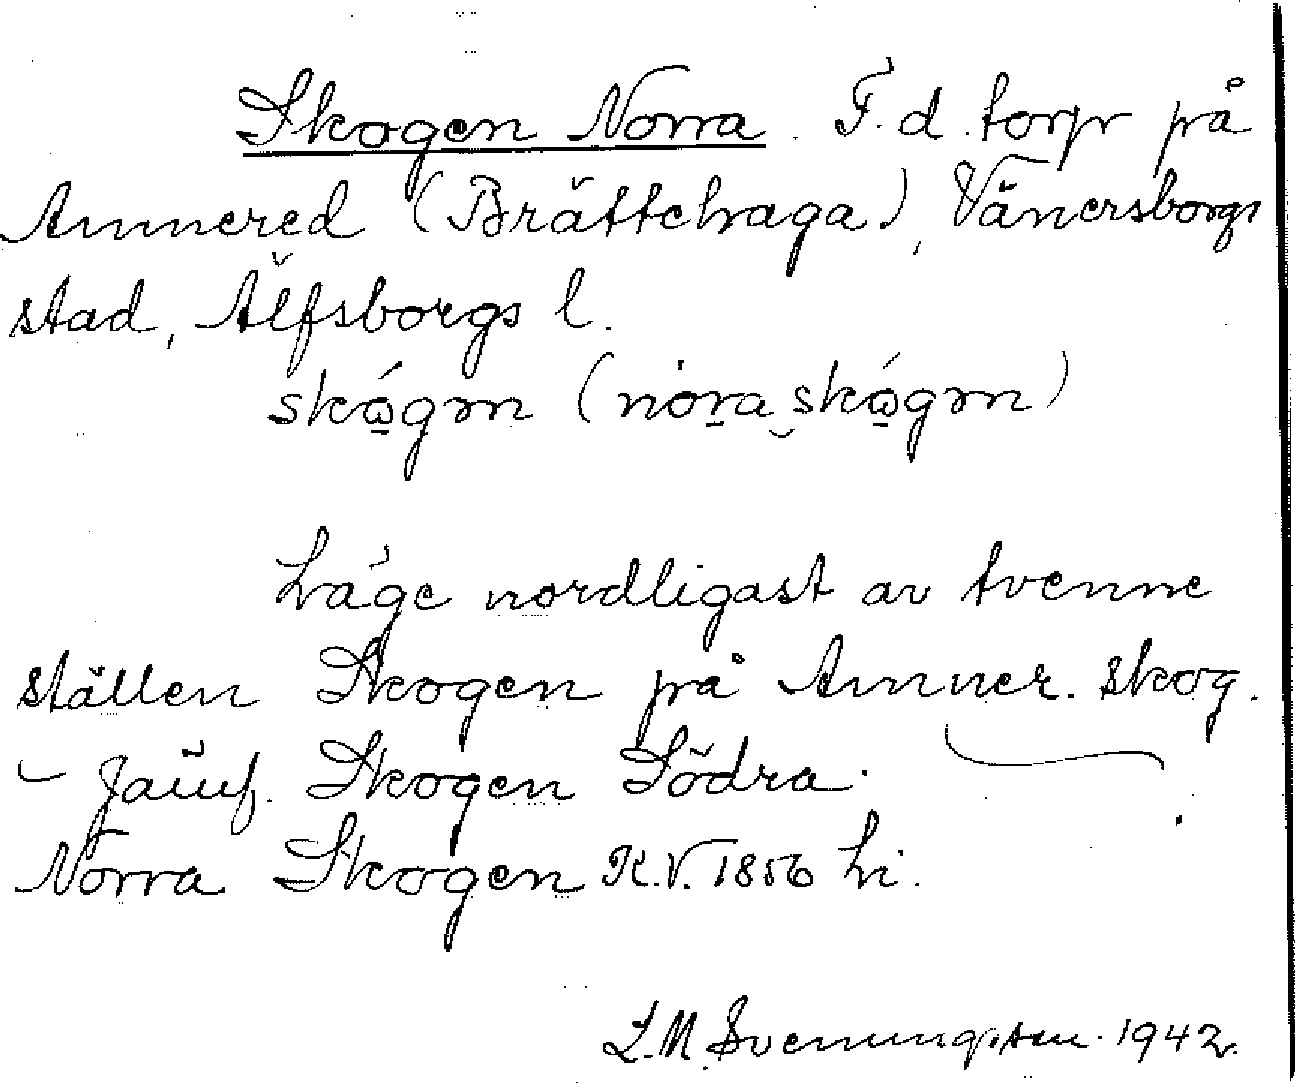 Skogen Norra. F. d. torp på
Annered (Brättehaga), Vänersborgs
stad, Älfsborgs l.
skǫ́gən (nȯra‿skǫ́gən)
Läge nordligast av tvenne
ställen Skogen på Anner. skog.
– Jämf. Skogen Södra.
Norra Skogen K.V. 1856 hi.
L.M. Svenungsson. 1942.